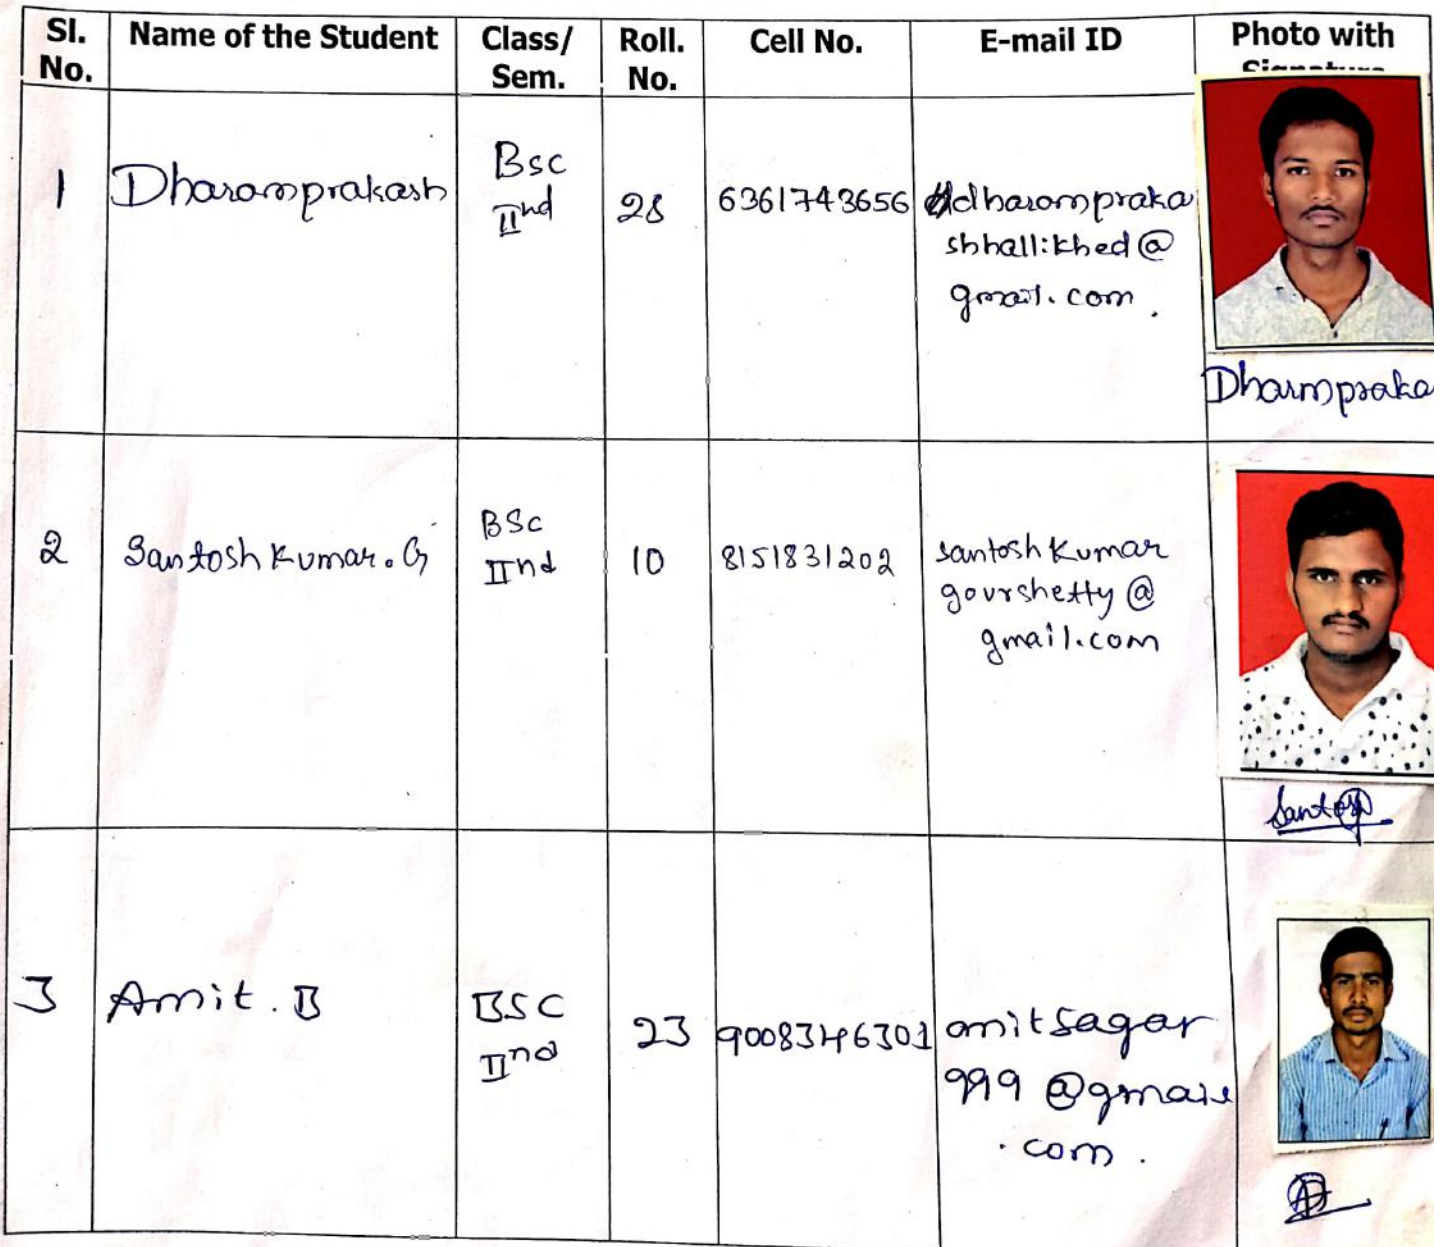 Sl. No. Name of the Student Class/ Sem. Roll. No. Cell No. E-mail ID Photo with Signature
1 Dharamprakash Bsc IInd 28 6361743656 dharampraka
shhallikhed@
gmail.com.
Dharmpraka
2 Santosh Kumar. G BSc IInd 10 8151831202 santosh kumar
gourshetty@
gmail.com
Santosh
3 Amit. B BSC IInd 23 9008346301 amitsagar
999 @gmail
.com.